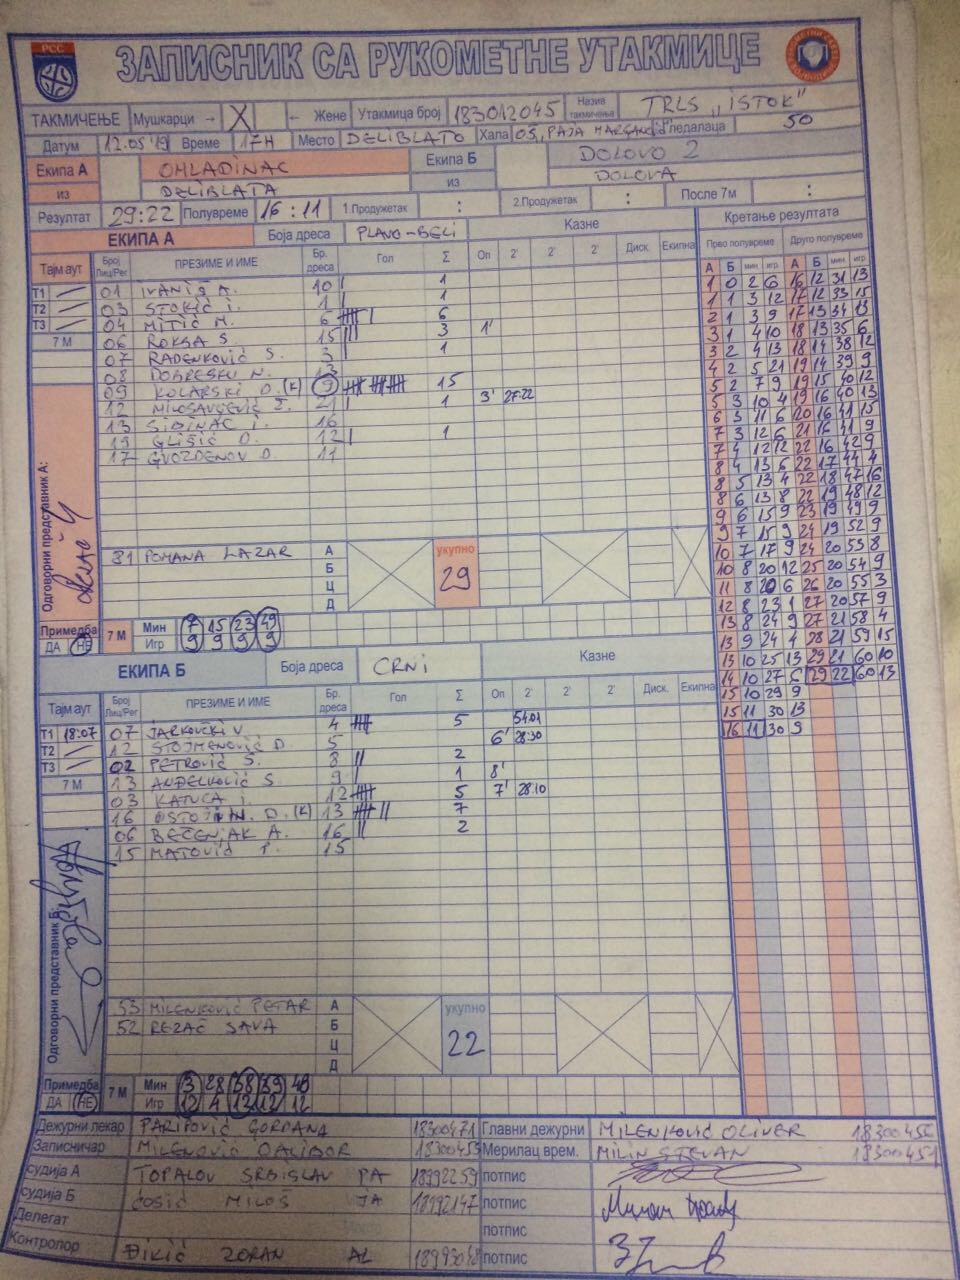 РСС
ЗАПИСНИК СА РУКОМЕТНЕ УТАКМИЦЕ
ТАКМИЧЕЊЕ Мушкарци → X ← Жене Утакмица број 183012045 Назив такмичења TRLS „ISTOK"
Датум 12.05'19 Време 17H Место DELIBLATO Хала OŠ, PAJA MARGANOVIĆ Гледалаца 50
Екипа А OMLADINAC Екипа Б DOLOVO 2
из DELIBLATA из DOLOVA
Резултат 29:22 Полувреме 16:11 1.Продужетак : 2.Продужетак : После 7м :
ЕКИПА А Боја дреса PLAVO-BELI Казне Кретање резултата
Тајм аут Број Лиц/Рег ПРЕЗИМЕ И ИМЕ Бр. дреса Гол Σ Оп 2' 2' 2' Диск. Екипна
Прво полувреме Друго полувреме
А Б мин. игр А Б мин. игр
T1 01 IVANIŠ A. 10 | 1
T2 03 STOKIĆ I. 1 | 1
T3 04 MITIĆ M. 6 |||| | 6
7 М 06 ROKSA S. 15 ||| 3 1'
07 RADENKOVIĆ S. 3 | 1
08 DOBRESKU N. 13
09 KOLARSKI D. (K) 9 15 3' 27:22
12 MILOSAVLJEVIĆ Ž. 21 | 1
13 SIDINAC I. 16
19 GLIŠIĆ D. 12 | 1
17 GVOZDENOV D. 11
1 0 2 6 16 12 31 13
1 1 3 12 17 12 33 15
2 1 3 9 17 13 34 13
3 1 4 10 18 13 35 6
3 2 4 13 18 14 38 12
4 2 5 21 19 14 39 9
5 2 7 9 19 15 40 12
5 3 10 4 19 16 40 13
6 3 11 6 20 16 41 15
7 3 12 6 21 16 41 9
7 4 12 12 22 16 42 9
8 4 13 6 22 17 44 4
8 5 13 4 22 18 47 16
8 6 13 8 22 19 48 12
9 6 15 9 23 19 49 9
9 7 15 9 24 19 52 9
10 7 17 9 24 20 53 8
10 8 20 12 25 20 54 9
11 8 20 6 26 20 55 3
12 8 23 1 27 20 57 9
13 8 24 9 27 21 58 4
13 9 24 4 28 21 59 15
13 10 25 13 29 21 60 10
14 10 27 6 29 22 60 13
15 10 29 9
15 11 30 13
16 11 30 9
Одговорни представник А:
31 POMANA LAZAR А укупно
Б 29
Ц
Д
Примедба 7 М Мин 7 15 23 49
ДА НЕ Игр 9 9 9 9
ЕКИПА Б Боја дреса CRNI Казне
Тајм аут Број Лиц/Рег ПРЕЗИМЕ И ИМЕ Бр. дреса Гол Σ Оп 2' 2' 2' Диск. Екипна
T1 18:07 07 JARKOVČKI V. 4 |||| 5 54:01
T2 12 STOJMENOVIĆ D. 5 6' 28:30
T3 02 PETROVIĆ S. 8 || 2
7 М 13 ANĐELKOVIĆ S. 9 | 1 8'
03 KATUCA I. 12 |||| 5 7' 28:10
16 D. (K) 13 |||| || 7
06 BEČENJAK A. 16 || 2
15 MATOVIĆ 15
Одговорни представник Б:
53 MILENKOVIĆ PETAR А укупно
52 REZAČ SAVA Б 22
Ц
Д
Примедба 7 М Мин 3 28 38 39 48
ДА НЕ Игр 12 4 12 12 12
Дежурни лекар PARIPOVIĆ GORDANA 18300471 Главни дежурни MILENKOVIĆ OLIVER 18300456
Записничар MILENOVIĆ DALIBOR 18300453 Мерилац врем. MILIN STEVAN 18300451
судија А TOPALOV SRBISLAV PA 18992259 потпис
судија Б ĆOSIĆ MILOŠ JA 18992147 потпис
Делегат потпис
Контролор ĐIKIĆ ZORAN AL потпис